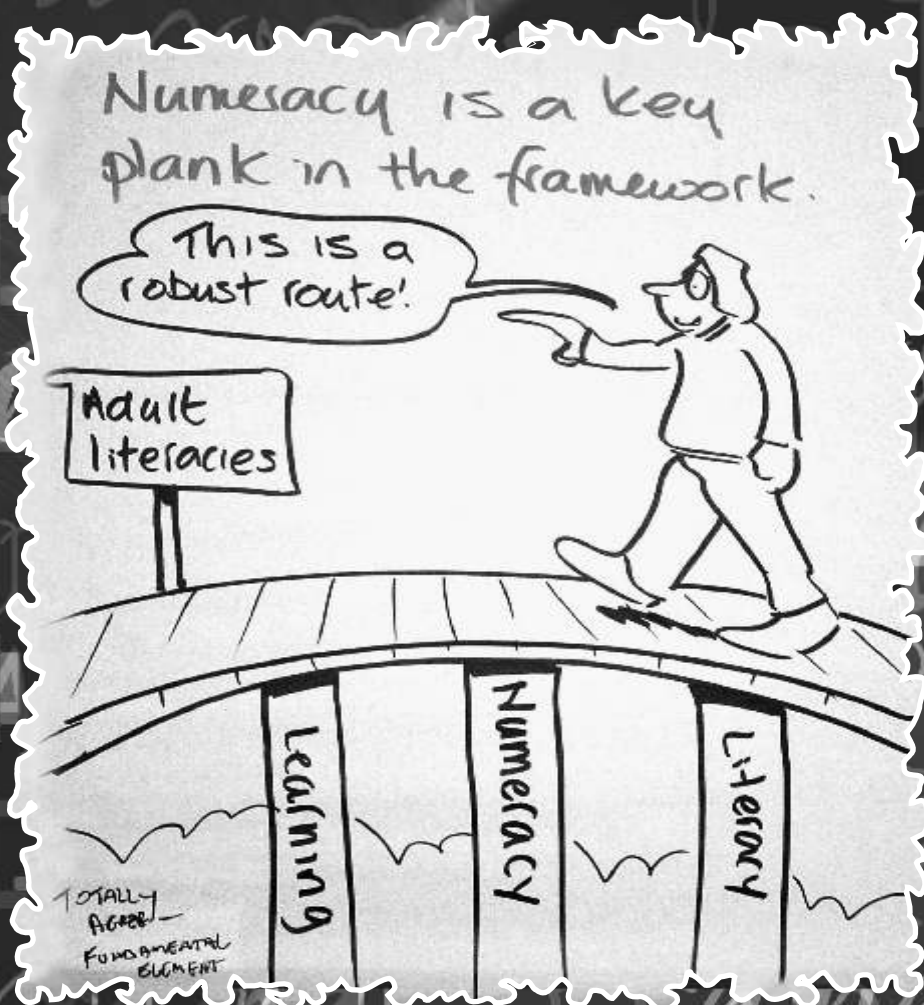 Numeracy is a key
plank in the framework.
This is a
robust route!
Adult
literacies
Learning
Numeracy
Literacy
TOTALLY
AGREE —
FUNDAMENTAL
ELEMENT